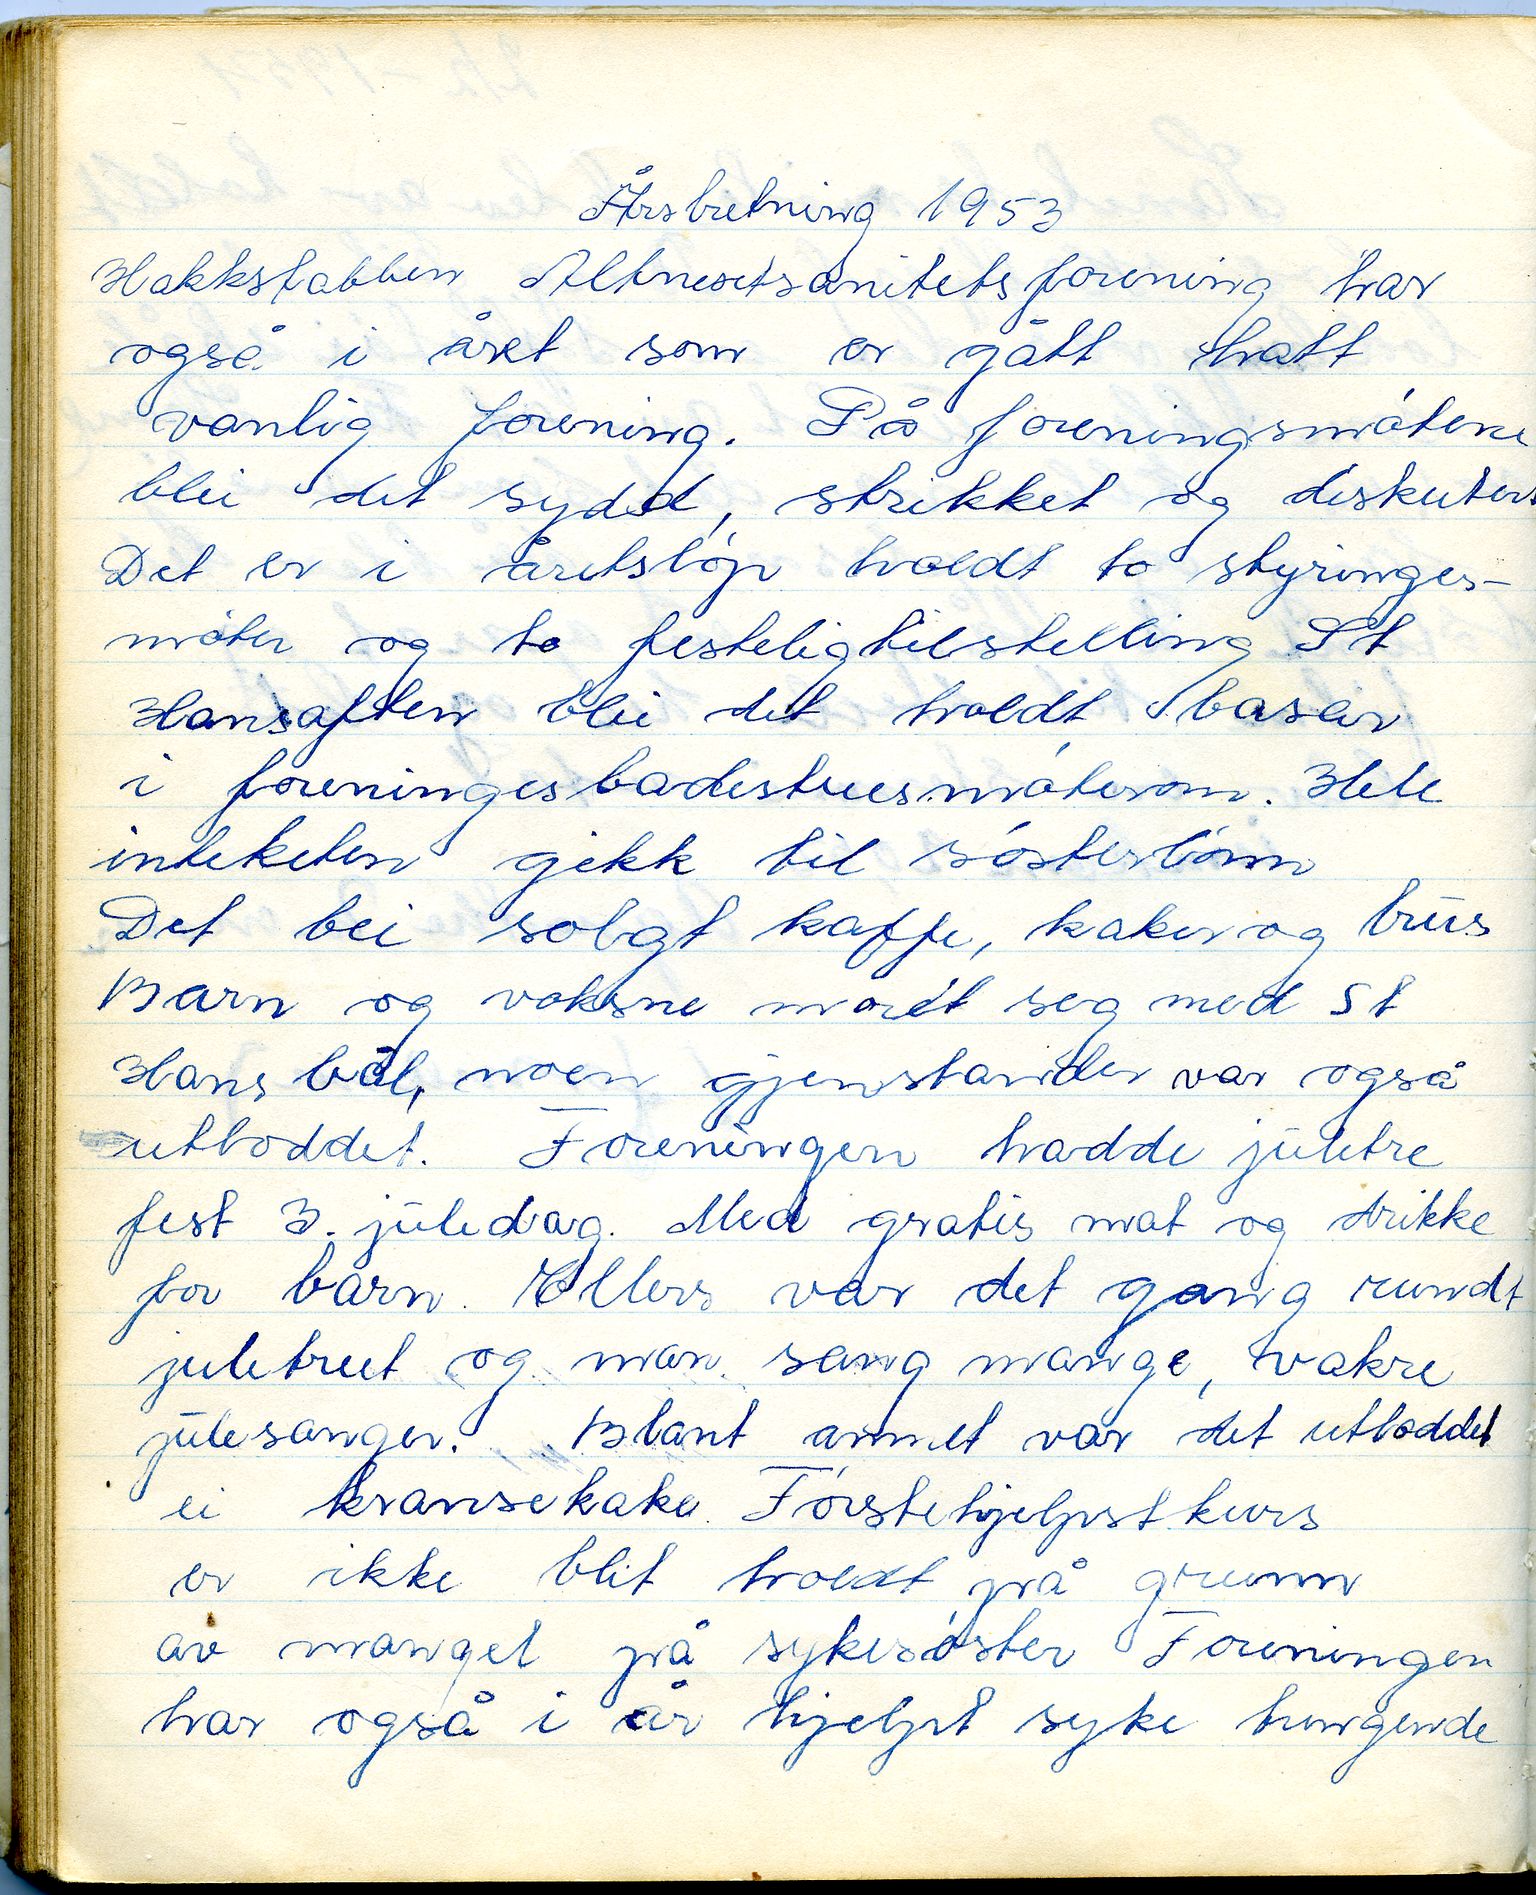 Årsbretning 1953
Hakkstabben Altnesetsanitetsforening har
også i året som er gått hatt
vanlig forening. På foreningsmötene
blei det sydd, strikket og diskutert
Det er i åretslöp holdt to styringes-
möter og to festeligtilstelling St
Hansaften blei det holdt basar
i foreningesbadestuesmöterom. Hele
inteketen gjekk til sösterlönn
Det blei solgt kaffe, kaker og brus
Barn og voksne moret seg med St
Hans bål, noen gjenstander var også
utloddet. Foreningen hadde juletre
fest 3. juledag. Med gratis mat og drikke
for barn. Ellers var det gang rundt
juletreet og man sang mange, vakre
julesanger. Blant annet var det utloddet
ei kransekake. Förstehjelpstkurs
er ikke blit holdt på grunn
av mangel på sykesöster Foreningen
har også i år hjelpt syke trengende